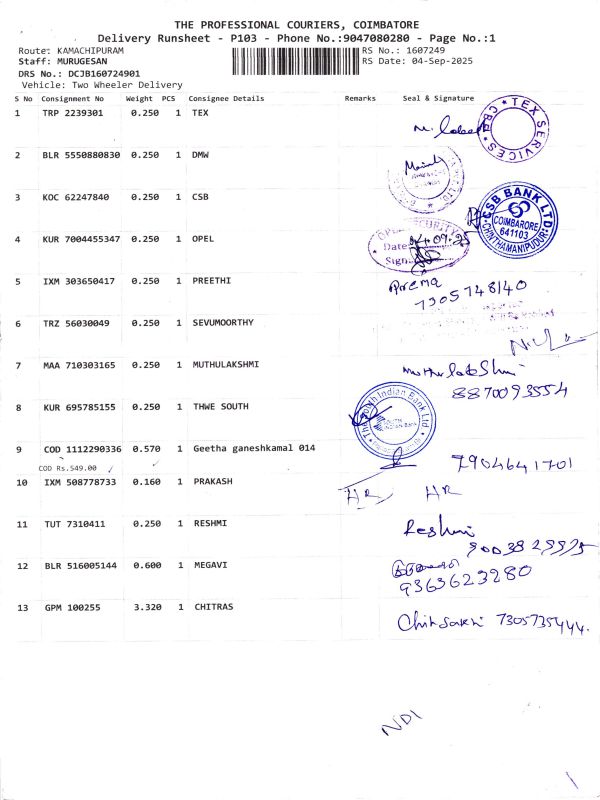 THE PROFESSIONAL COURIERS, COIMBATORE
Delivery Runsheet - P103 - Phone No.:9047080280 - Page No.:1
Route: KAMACHIPURAM RS No.: 1607249
Staff: MURUGESAN RS Date: 04-Sep-2025
DRS No.: DCJB160724901
Vehicle: Two Wheeler Delivery
S No Consignment No Weight PCS Consignee Details Remarks Seal & Signature
1 TRP 2239301 0.250 1 TEX
TEX SERVICES CBP
2 BLR 5550880830 0.250 1 DMW
3 KOC 62247840 0.250 1 CSB
CSB BANK LTD.
COIMBATORE
641103
CHINTHAMANIPUDUR
4 KUR 7004455347 0.250 1 OPEL
SECURITY
Date: 04.09.25
Sign
5 IXM 303650417 0.250 1 PREETHI
Prema
7305748140
6 TRZ 56030049 0.250 1 SEVUMOORTHY
7 MAA 710303165 0.250 1 MUTHULAKSHMI
Muthulakshmi
8870093554
8 KUR 695785155 0.250 1 THWE SOUTH
The South Indian Bank Ltd
9 COD 1112290336 0.570 1 Geetha ganeshkamal 014
COD Rs.549.00
7904641701
10 IXM 508778733 0.160 1 PRAKASH
HR HR
11 TUT 7310411 0.250 1 RESHMI
Reshmi
12 BLR 516005144 0.600 1 MEGAVI
9363623280
13 GPM 100255 3.320 1 CHITRAS
7305735444.
NDI